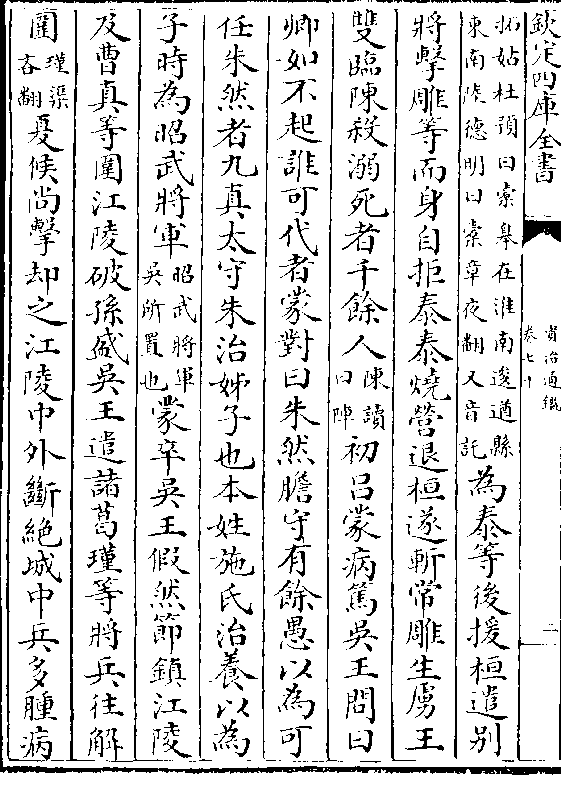 欽定四庫全書
資治通鑑
卷七十
二
拓姑杜預曰橐皐在淮南逡遒縣
東南陸德明曰橐章夜翻又音託
為泰等後援桓遣別
將擊雕等而身自拒泰泰燒營退桓遂斬常雕生虜王
雙臨陳殺溺死者千餘人陳讀曰陣初呂蒙病篤吳王問曰
卿如不起誰可代者蒙對曰朱然膽守有餘愚以為可
任朱然者九真太守朱治姊子也本姓施氏治養以為
子時為昭武將軍昭武將軍吳所置也蒙卒吳王假然節鎮江陵
及曹真等圍江陵破孫盛吳王遣諸葛瑾等將兵往解
圍瑾渠吝翻夏候尚擊却之江陵中外斷絶城中兵多腫病